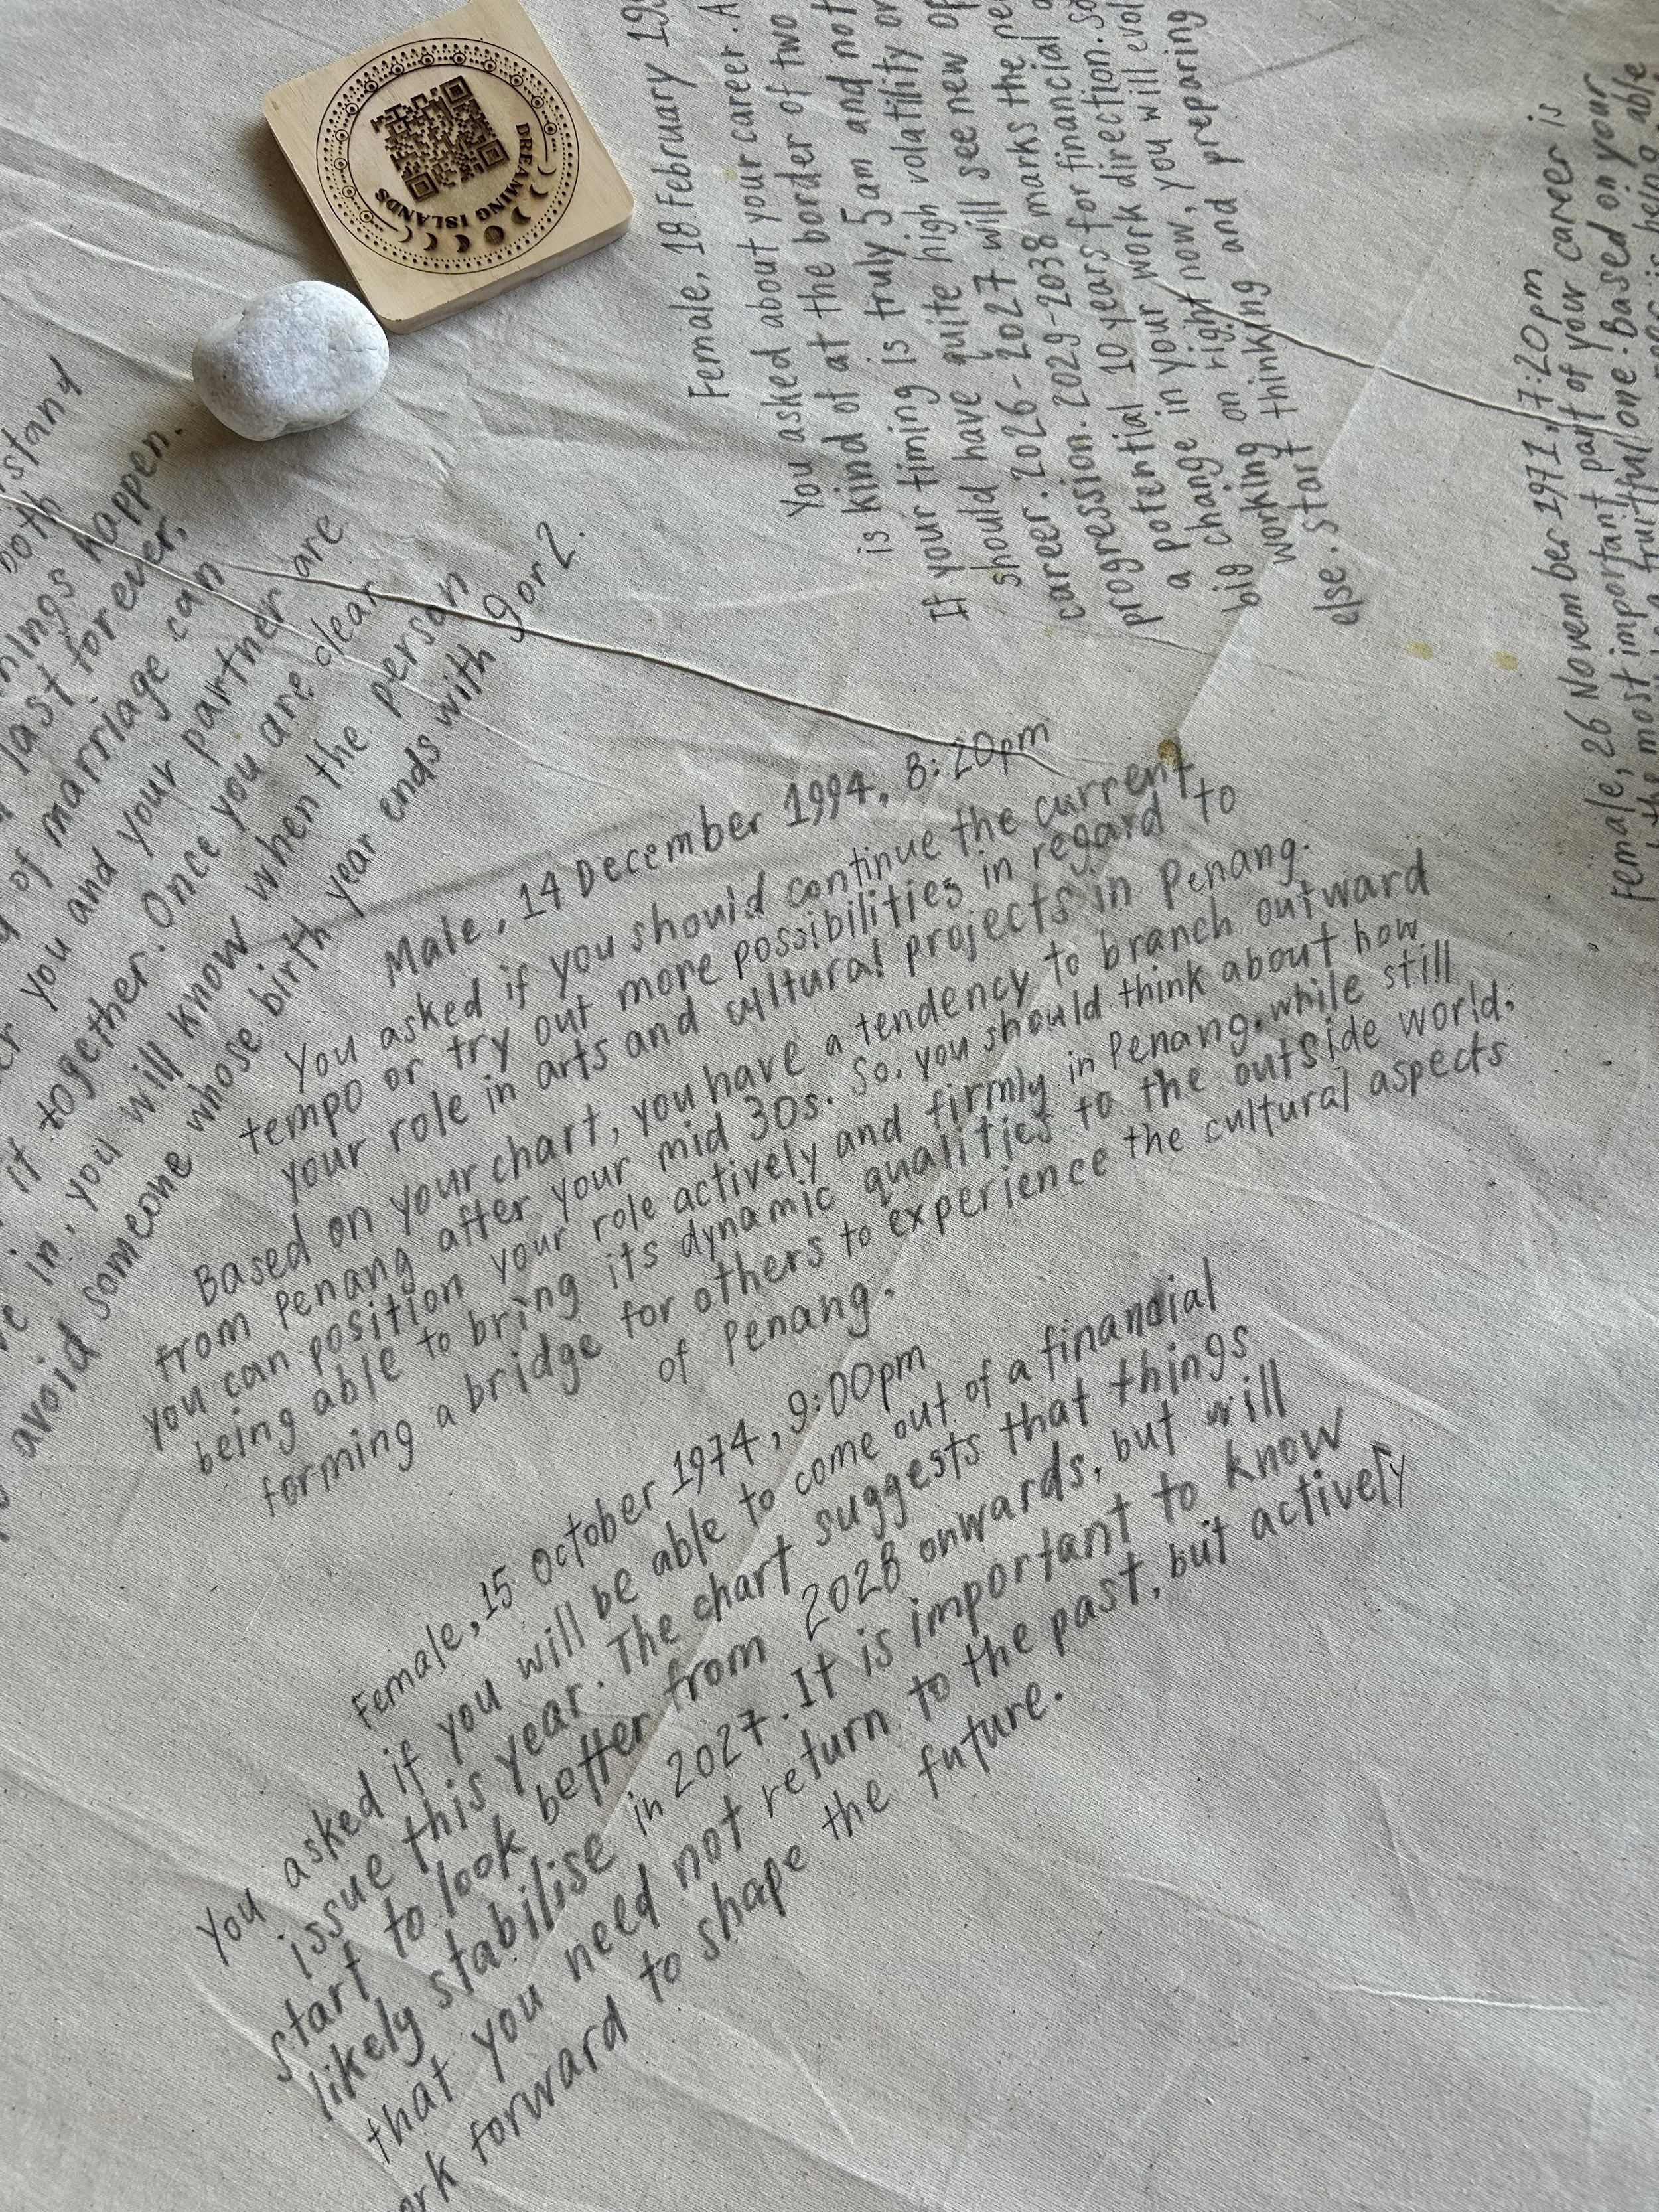 DREAMING ISLANDS
both
happen.
last forever,
of marriage can
you and your partner are
it together. Once you are clear
in, you will know when the person
avoid someone whose birth year ends with 9 or 2.
Female, 18 February
You asked about your career. A
is kind of at the border of two
If your timing is truly 5am and not
should have quite high volatility
should 2026-2027 will see new
career. 2029-2038 marks the
progression. 10 years for financial
potential in your work direction.
a change right now, you will
big on and preparing
working thinking
start
else.
Female, 26 November 1971, 7:20pm
the most important part of your career is
fruitful one. Based on your
able
Male, 14 December 1994, 8:20pm
You asked if you should continue the current
tempo or try out more possibilities in regard to
your role in arts and cultural projects in Penang.
Based on your chart, you have a tendency to branch outward
from Penang after your mid 30s. So, you should think about how
you can position your role actively and firmly in Penang, while still
being able to bring its dynamic qualities to the outside world,
forming a bridge for others to experience the cultural aspects
of Penang.
Female, 15 October 1974, 9:00pm
You asked if you will be able to come out of a financial
issue this year. The chart suggests that things
start to look better from 2028 onwards, but will
likely stabilise in 2027. It is important to know
that you need not return to the past, but actively
forward to shape the future.